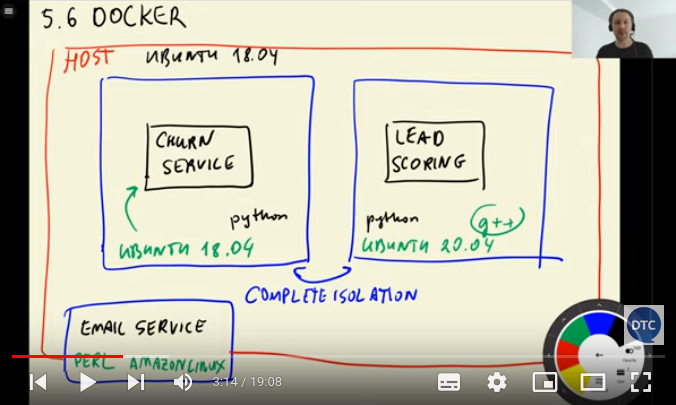 5.6 DOCKER
HOST UBUNTU 18.04
CHURN
SERVICE
python
UBUNTU 18.04
LEAD
SCORING
python g++
UBUNTU 20.04
COMPLETE ISOLATION
EMAIL SERVICE
PERL AMAZON LINUX
DTC
3:14 / 19:08